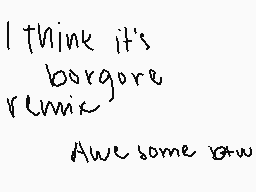 I think it's
borgore
remix
Awesome btw